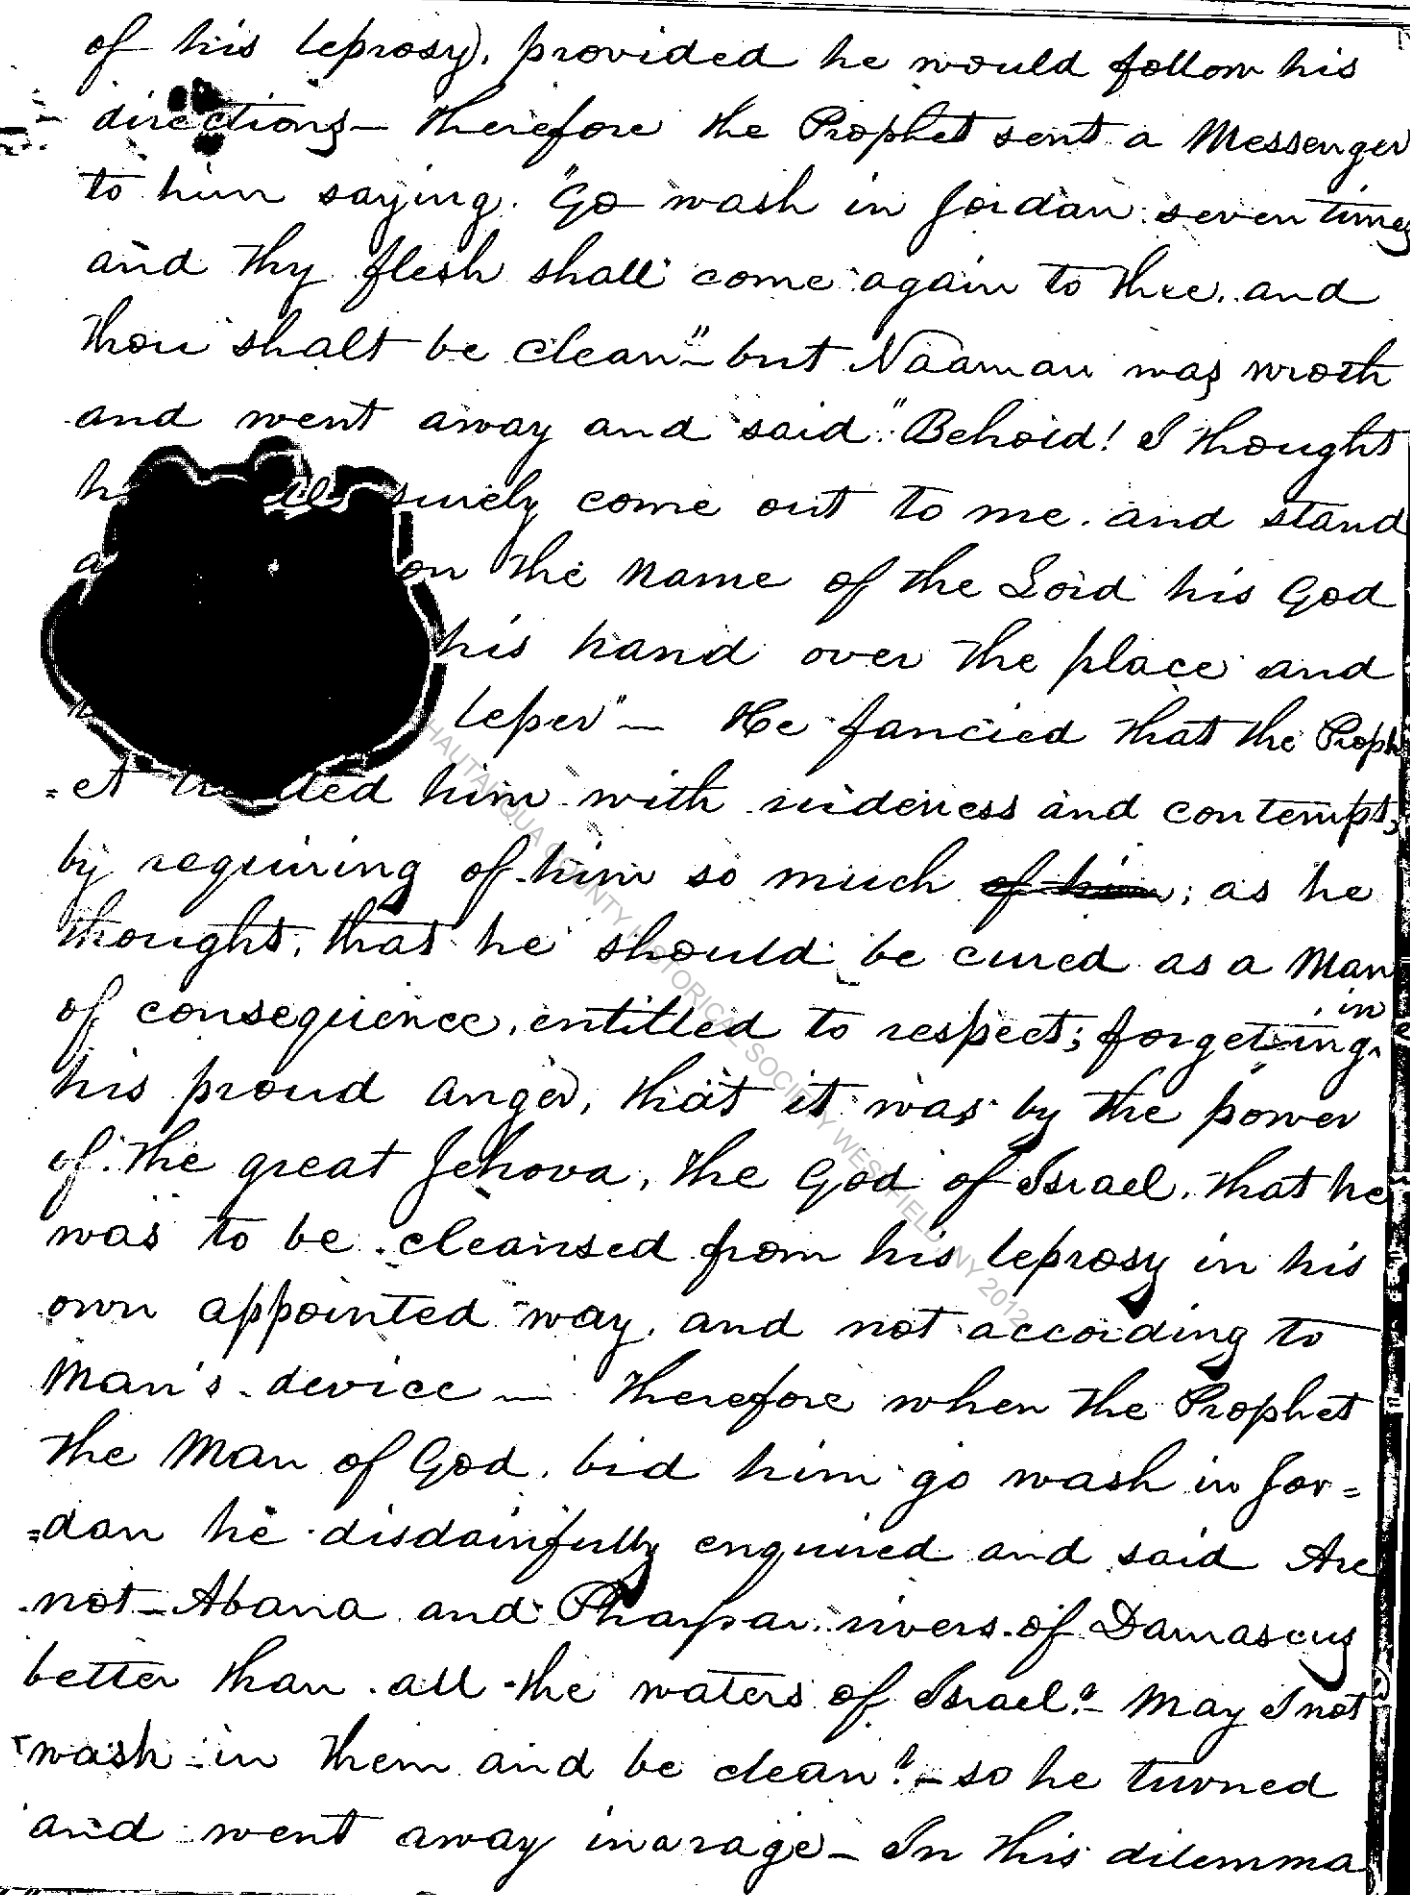 of his leprosy, provided he would follow his
directions — Therefore the Prophet sent a Messenger
to him saying. "Go wash in Jordan seven times
and thy flesh shall come again to thee, and
thou shalt be clean" — but Naaman was wroth
and went away and said "Behold! I thought
surely come out to me. and stand
on the name of the Lord his God
his hand over the place and
leper" — He fancied that the Proph
=et him with rudeness and contempt,
by requiring of him so much of him; as he
thought, that he should be cured as a Man
of consequence, entitled to respect; forgetting in
his proud anger, that it was by the power
of the great Jehova, the God of Israel, that he
was to be cleansed from his leprosy in his
own appointed way, and not according to
Man's device — Therefore when the Prophet
the Man of God, bid him go wash in Jor=
=dan he disdainfully enquired and said Are
not Abana and Pharpar rivers of Damascus
better than all the waters of Israel? — May I not
wash in them and be clean? — so he turned
and went away in a rage — In this dilemma
CHAUTAUQUA COUNTY HISTORICAL SOCIETY WESTFIELD, NY 2012